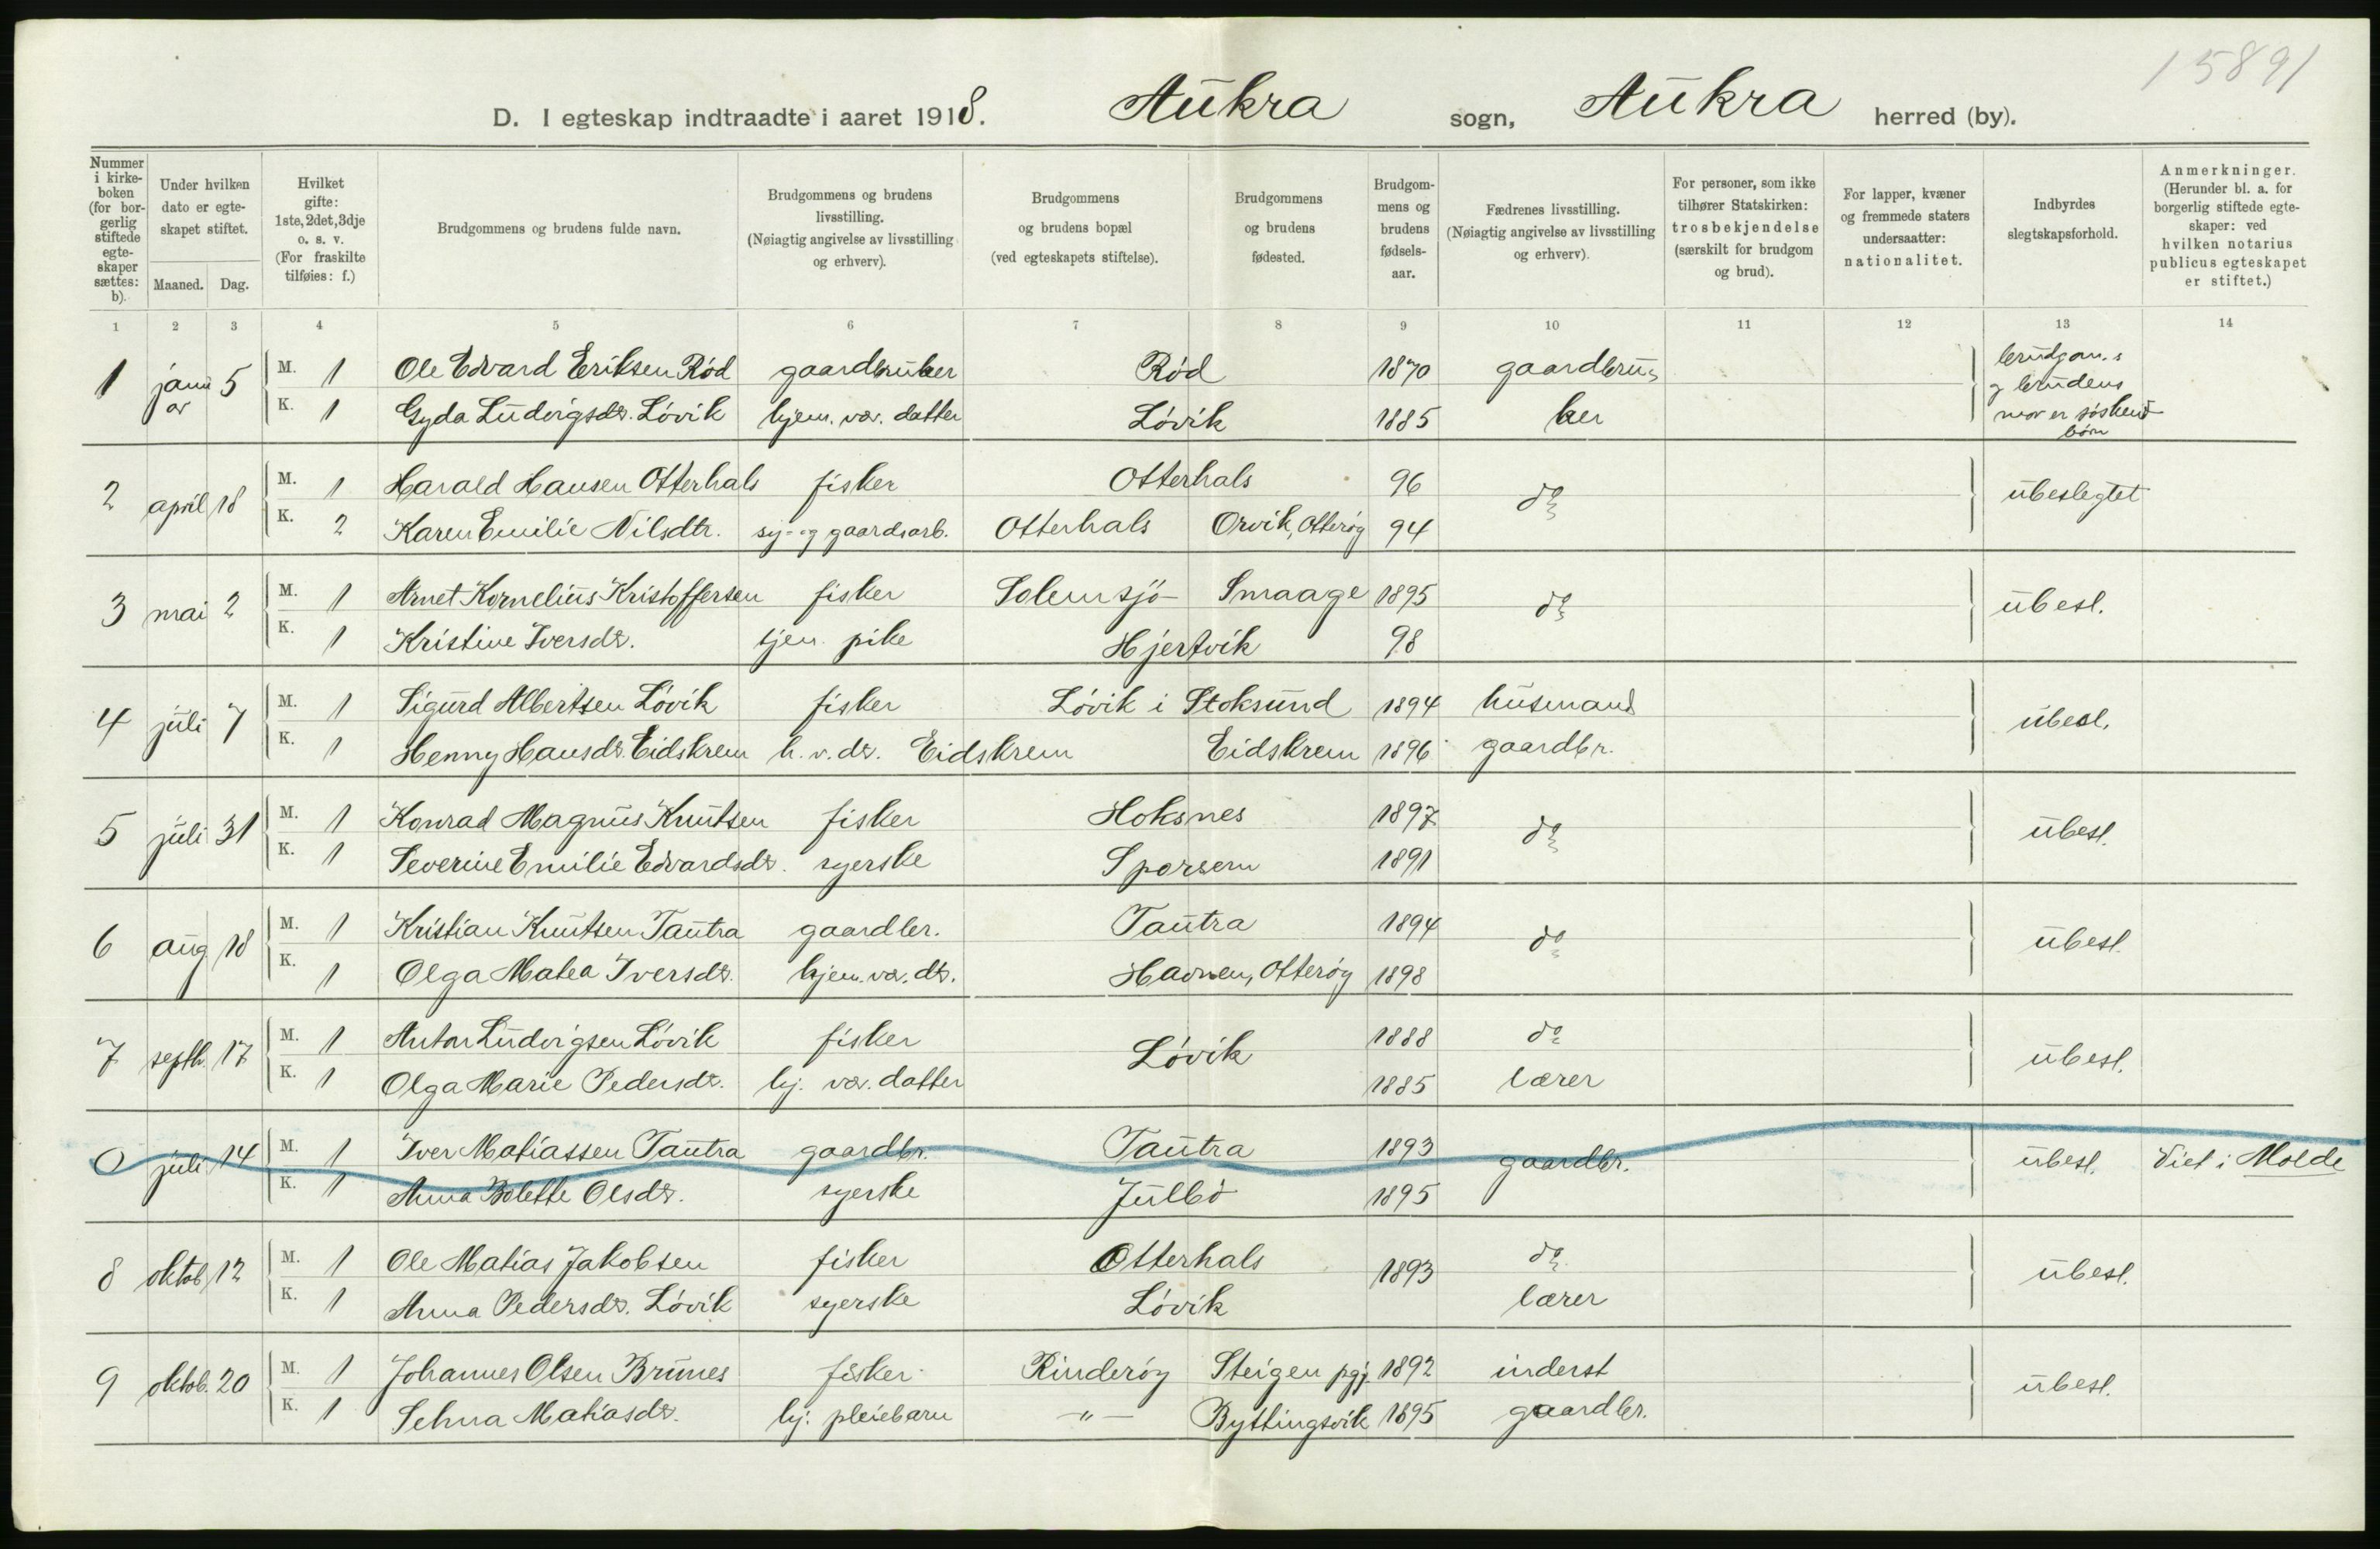 15891
D. I egteskap indtraadte i aaret 1918. Aukra sogn, Aukra herred (by).
Nummer i kirkeboken (for borgerlig stiftede egteskaper sættes: b).
Under hvilken dato er egteskapet stiftet.
Maaned. Dag.
Hvilket gifte: 1ste, 2det, 3dje o. s. v. (For fraskilte tilføies: f.)
Brudgommens og brudens fulde navn.
Brudgommens og brudens livsstilling. (Nøiagtig angivelse av livsstilling og erhverv).
Brudgommens og brudens bopæl (ved egteskapets stiftelse).
Brudgommens og brudens fødested.
Brudgommens og brudens fødselsaar.
Fædrenes livsstilling. (Nøiagtig angivelse av livsstilling og erhverv).
For personer, som ikke tilhører Statskirken: trosbekjendelse (særskilt for brudgom og brud).
For lapper, kvæner og fremmede staters undersaatter: nationalitet.
Indbyrdes slegtskapsforhold.
Anmerkninger. (Herunder bl. a. for borgerlig stiftede egteskaper: ved hvilken notarius publicus egteskapet er stiftet.)
1 2 3 4 5 6 7 8 9 10 11 12 13 14
1 januar 5 M. 1 Ole Edvard Eriksen Rød gaardbruker Rød 1870 gaardbru- brudgom.s
K. 1 Gyda Ludvigsdr. Løvik hjem. vær. datter Løvik 1885 ker og brudens mor er søskendbørn
2 april 18 M. 1 Harald Hansen Otterhals fisker Otterhals 96 do ubeslegtet
K. 2 Karen Emilie Nilsdtr. sy- og gaardsarb. Otterhals Orvik, Otterøy 94
3 mai 2 M. 1 Arnet Kornelius Kristoffersen fisker Solemsjø Smaage 1895 do ubesl.
K. 1 Kristine Iversdr. tjen. pike Hjertvik 98
4 juli 7 M. 1 Sigurd Albertsen Løvik fisker Løvik i Stoksund 1894 husmand ubesl.
K. 1 Henny Hansdr. Eidskrem h. v. dr. Eidskrem Eidskrem 1896 gaardbr.
5 juli 31 M. 1 Konrad Magnus Knutsen fisker Hoksnes 1897 do ubesl.
K. 1 Severine Emilie Edvardsdr. syerske Sporsem 1891
6 aug 18 M. 1 Kristian Knutsen Tautra gaardbr. Tautra 1894 do ubesl.
K. 1 Olga Matea Iversdr. hjem. vær. dr. Havnen, Otterøy 1898
7 septb. 17 M. 1 Anton Ludvigsen Løvik fisker Løvik 1888 do ubesl.
K. 1 Olga Marie Pedersdr. hj. vær. datter 1885 lærer
0 juli 14 M. 1 Iver Matiassen Tautra gaardbr. Tautra 1893 gaardbr. ubesl. Viet i Molde
K. 1 Anna Bolette Olsdr. syerske Julbø 1895
8 oktob. 12 M. 1 Ole Matias Jakobsen fisker Otterhals 1893 do ubesl.
K. 1 Anna Pedersdr. Løvik syerske Løvik lærer
9 oktob. 20 M. 1 Johannes Olsen Brunes fisker Rinderøy Steigen pgj. 1892 inderst ubesl.
K. 1 Selma Matiasdr. hj. pleiebarn —"— Byttingsvik 1895 gaardbr.